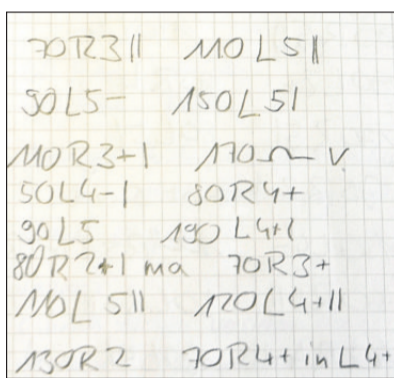 70R3|| 110L5||
90L5- 150L5|
110R3+| 170⌒ v.
50L4-| 80R4+
90L5 190L4+|
80R2+| ma 70R3+
110L5|| 120L4+||
130R2 70R4+ in L4+